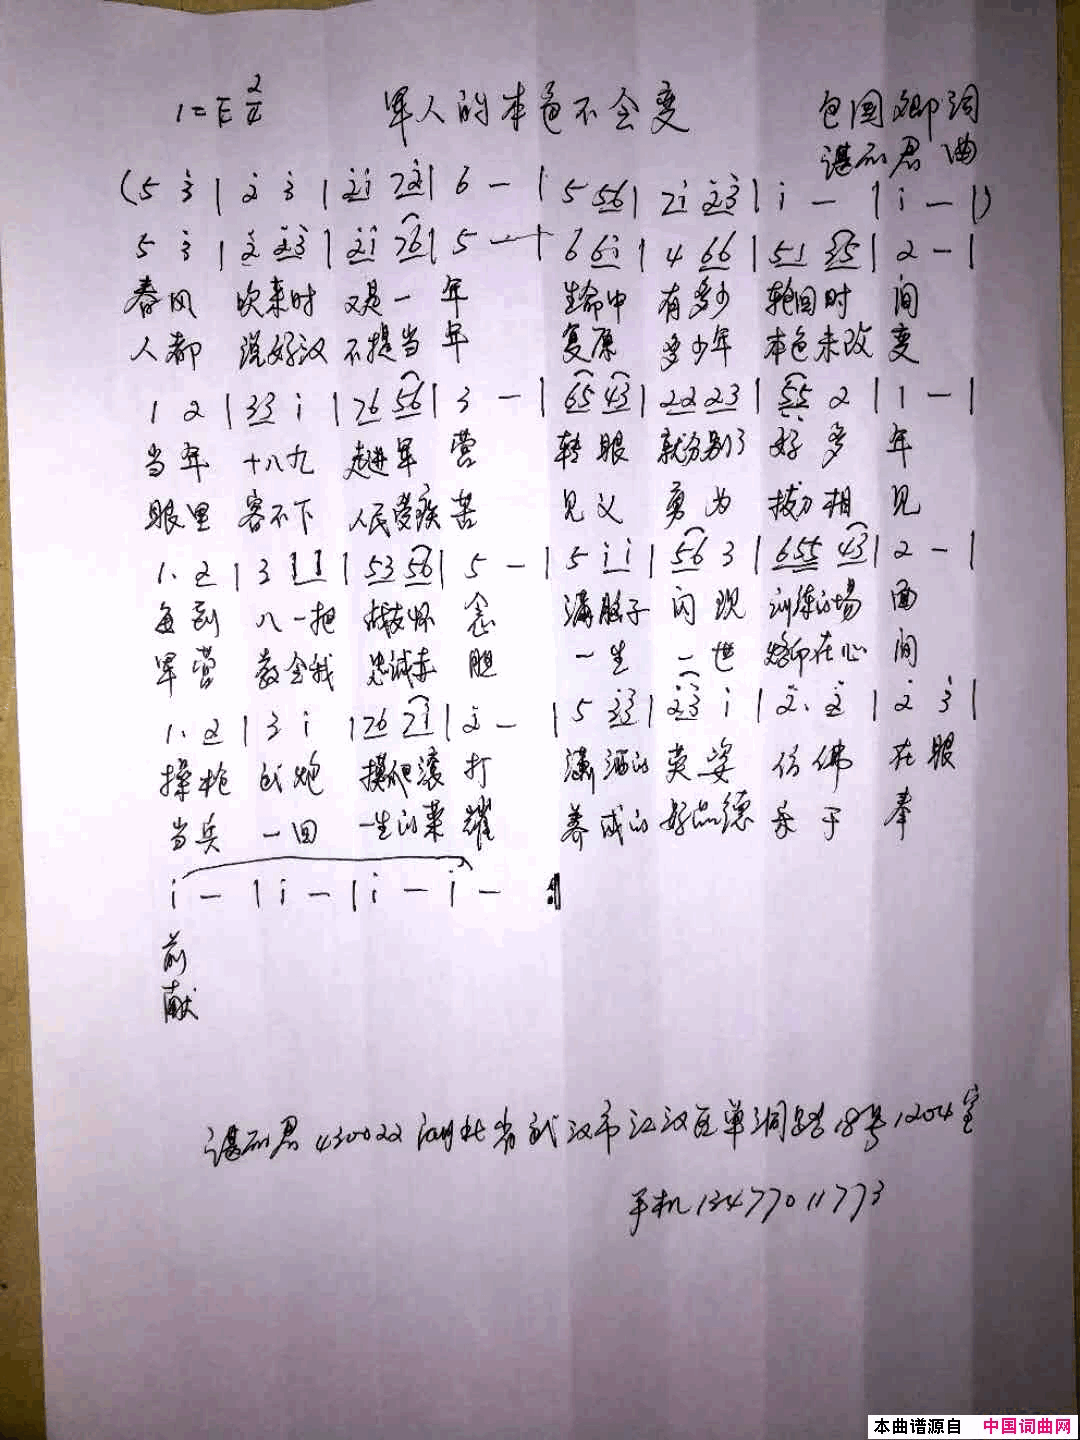 1=E 2/4 军人的本色不会变 包国卿词
谌丽君曲
(5 3̇ | 2̇ 3̇ | 2̇1̇ 72̇ | 6 - | 5 56 | 71̇ 2̇3̇ | 1̇ - | 1̇ - |)
5 3̇ | 2̇ 2̇3̇ | 2̇1̇ 76 | 5 - | 6 61̇ | 4 66 | 51 35 | 2 - |
春风 吹来时 又是一 年 生命中 有多少 轮回时 间
人都 说好汉 不提当 年 复原 多少年 本色未改 变
1 2 | 33 1̇ | 76 56 | 3 - | 65 43 | 22 23 | 55 2 | 1 - |
当年 十八九 走进军 营 转眼 就分别了 好多 年
眼里 容不下 人民受疾 苦 见义 勇为 拔刀相 见
1. 2 | 3 1 1 | 53 56 | 5 - | 5 1̇ 1̇ | 56 3 | 655 43 | 2 - |
每到 八一把 战友怀 念 满脑子 闪现 训练的场 面
军营 教会我 忠诚赤 胆 一生 一世 烙印在心 间
1. 2 | 3 1̇ | 76 71̇ | 2̇ - | 5 3̇3̇ | 2̇3̇ 1̇ | 2̇. 2̇ | 2̇ 3̇ |
操枪 战炮 摸爬滚 打 潇洒的 英姿 仿佛 在眼
当兵 一回 一生的荣 耀 养成的 好品德 乐于 奉
1̇ - | 1̇ - | 1̇ - | 1̇ - :|
前
献
谌丽君 430022 湖北省武汉市江汉区单洞路18号1204室
手机13477011773
本曲谱源自 中国词曲网